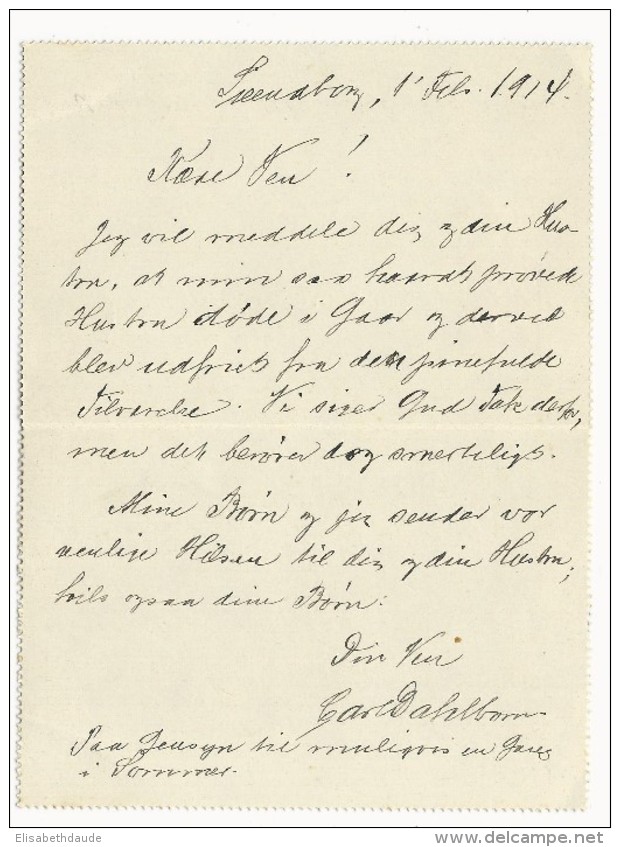 Svendborg, 1' Feb. 1914.
Kære Ven!
Jeg vil meddele dig og din Hus-
tru, at min saa haardt prøvede
Hustru døde i Gaar og derved
blev udfriet fra den pinefulde
Tilværelse. Vi siger Gud Tak derfor,
men det berører dog smerteligt.
Mine Børn og jeg sender vor
venlige Hilsen til dig og din Hustru;
hils ogsaa dine Børn.
Din Ven
Carl Dahlborn
Paa Gensyn til muligvis en Gang
i Sommer.
Elisabethdaude
delcampe.net